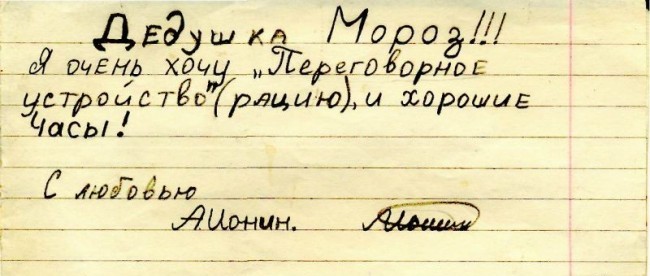 Дедушка Мороз!!!
Я очень хочу „Переговорное
устройство"(рацию), и хорошие
часы!
С любовью
А.Ионин.